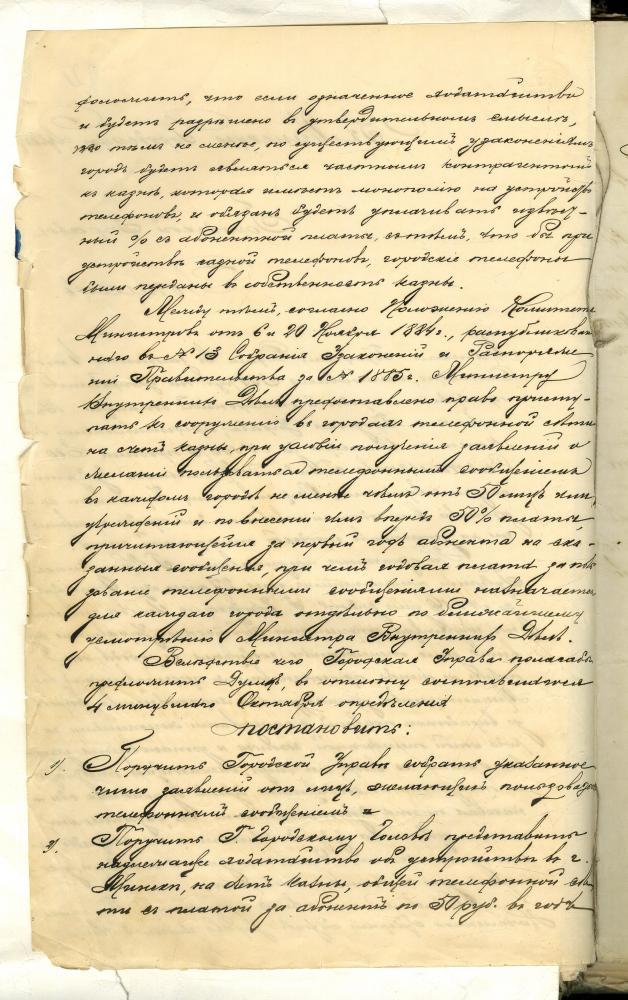 положить, что если означенное ходатайство
и будетъ разрѣшено въ утвердительномъ смыслѣ,
то тѣмъ не менѣе, по существующимъ узаконеніямъ
городъ будетъ являться частнымъ контрагентомъ
къ казнѣ, которая имѣетъ монополію на устройство
телефоновъ, и обязанъ будетъ уплачивать извѣст-
ный % съ абонентной платы, съ тѣмъ, что бы при
устройствѣ казной телефоновъ, городскіе телефоны
были переданы въ собственность казны.
Между тѣмъ, согласно Положенію Комитета
Министровъ отъ 6 и 20 Ноября 1884 г., распубликован-
ного въ № 13 Собранія Узаконеній и Распоряже-
ній Правительства за № 1885 г. Министру
Внутреннихъ Дѣлъ предоставлено право присту-
пать къ сооруженію въ городахъ телефонной сѣти
на счетъ казны, при условіи полученія заявленій о
желаніи пользоваться телефоннымъ сообщеніемъ
въ каждомъ городѣ не менѣе чѣмъ отъ 50 лицъ или
учрежденій и по внесеніи ими впередъ 50% платы,
причитающейся за первый годъ абонента на ска-
занныя сообщенія, при чемъ годовая плата за поль
зованіе телефонными сообщеніями назначается
для каждаго города отдѣльно по ближайшему
усмотрѣнію Министра Внутреннихъ Дѣлъ.
Вслѣдствіе чего Городская Управа полагала бы
предложить Думѣ, въ отмѣну состоявшагося
4 минувшаго Октября опредѣленія
постановить:
1). Поручить Городской Управѣ собрать указанное
число заявленій отъ лицъ, желающихъ пользоваться
телефоннымъ сообщеніемъ и
2). Поручить Г. Городскому Головѣ представить
надлежащее ходатайство объ устройствѣ въ г.
Минскѣ, на счетъ казны, общей телефонной сѣ-
ти съ платой за абонентъ по 50 руб. въ годъ